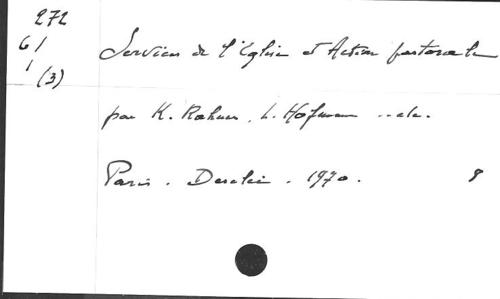 272
61
1
(3)
Services de l'Eglise et Action pastorale
par K. Rahner, L. Hofmann ... etc.
Paris. Desclée. 1970. 8